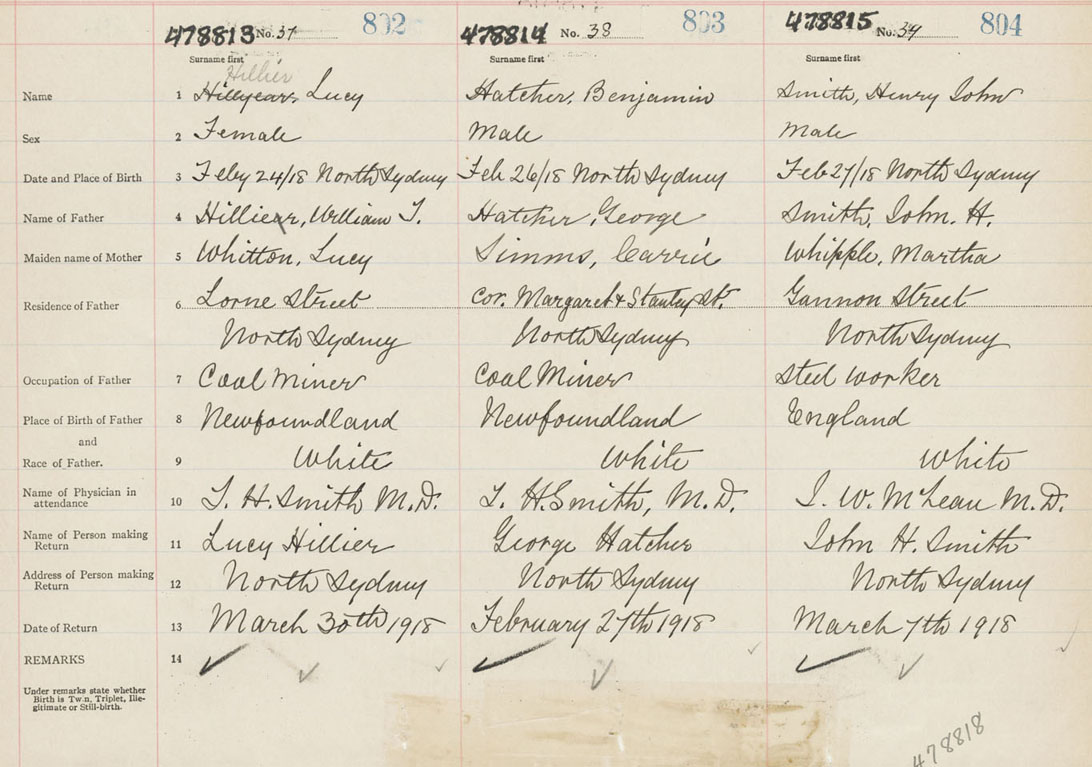 478813 No. 37 802 478814 No. 38 803 478815 No. 39 804
Surname first Surname first Surname first
Hillier
Name 1 Hillyears, Lucy Hatcher, Benjamin Smith, Henry John
Sex 2 Female Male Male
Date and Place of Birth 3 Feby 24/18 North Sydney Feb 26/18 North Sydney Feb 27/18 North Sydney
Name of Father 4 Hillier, William T. Hatcher, George Smith, John. H.
Maiden name of Mother 5 Whitton, Lucy Simms, Carrie Whipple, Martha
Residence of Father 6 Lorne Street Cor. Margaret & Stanley St. Gannon Street
North Sydney North Sydney North Sydney
Occupation of Father 7 Coal Miner Coal Miner Steel worker
Place of Birth of Father 8 Newfoundland Newfoundland England
and
Race of Father. 9 White White White
Name of Physician in attendance 10 T. H. Smith M.D. T. H. Smith, M.D. J. W. McLean M.D.
Name of Person making Return 11 Lucy Hillier George Hatcher John H. Smith
Address of Person making Return 12 North Sydney North Sydney North Sydney
Date of Return 13 March 30th 1918 February 27th 1918 March 7th 1918
REMARKS 14
Under remarks state whether
Birth is Twin, Triplet, Ille-
gitimate or Still-birth.
478818